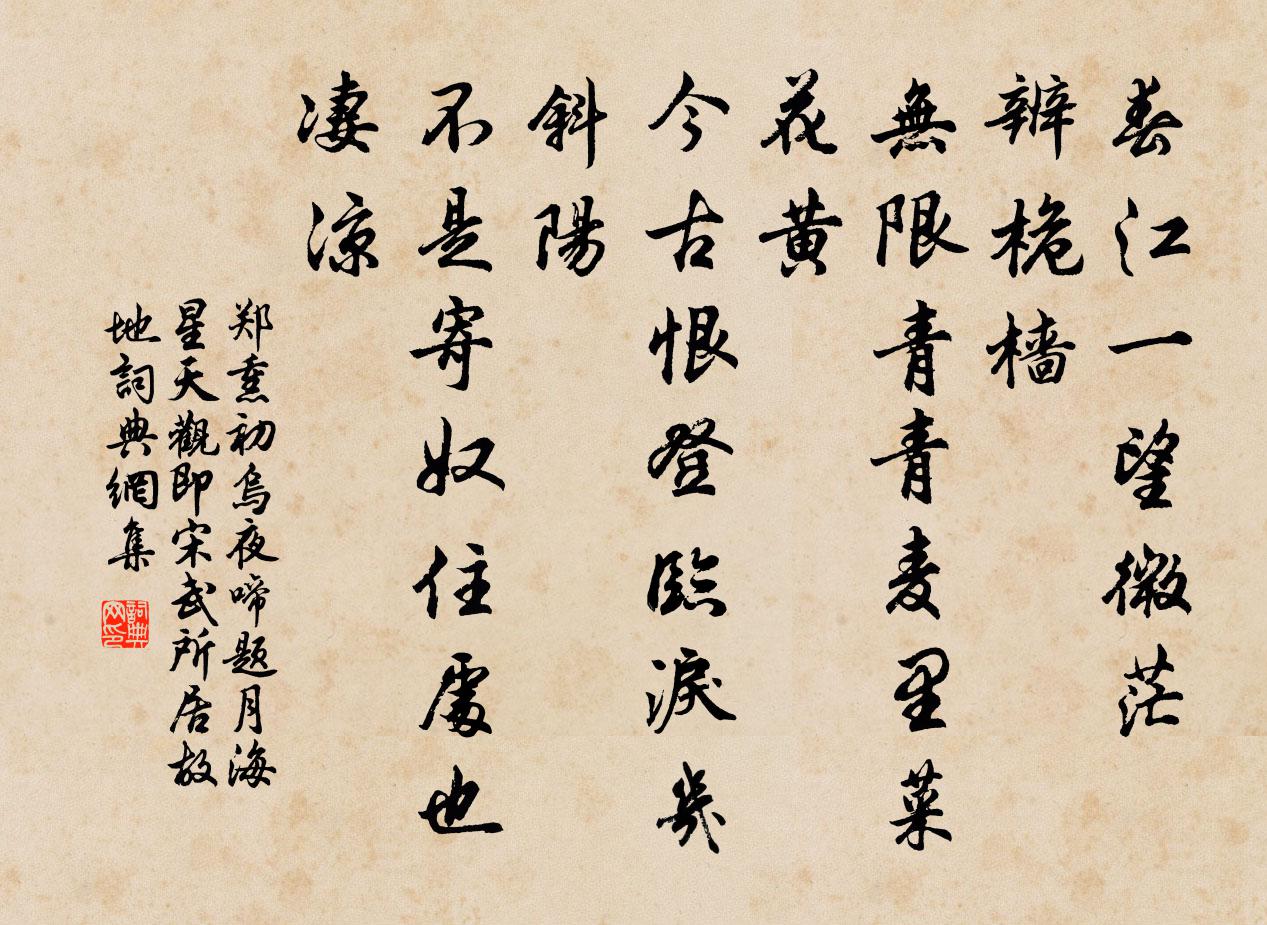 春江一望微茫
辨桅檣
無限青青麦里菜
花黄
今古恨登臨淚幾
斜陽
不是寄奴住處也
凄涼
郑熏初烏夜啼题月海
星天觀即宋武所居故
地詞典網集
詞典网印